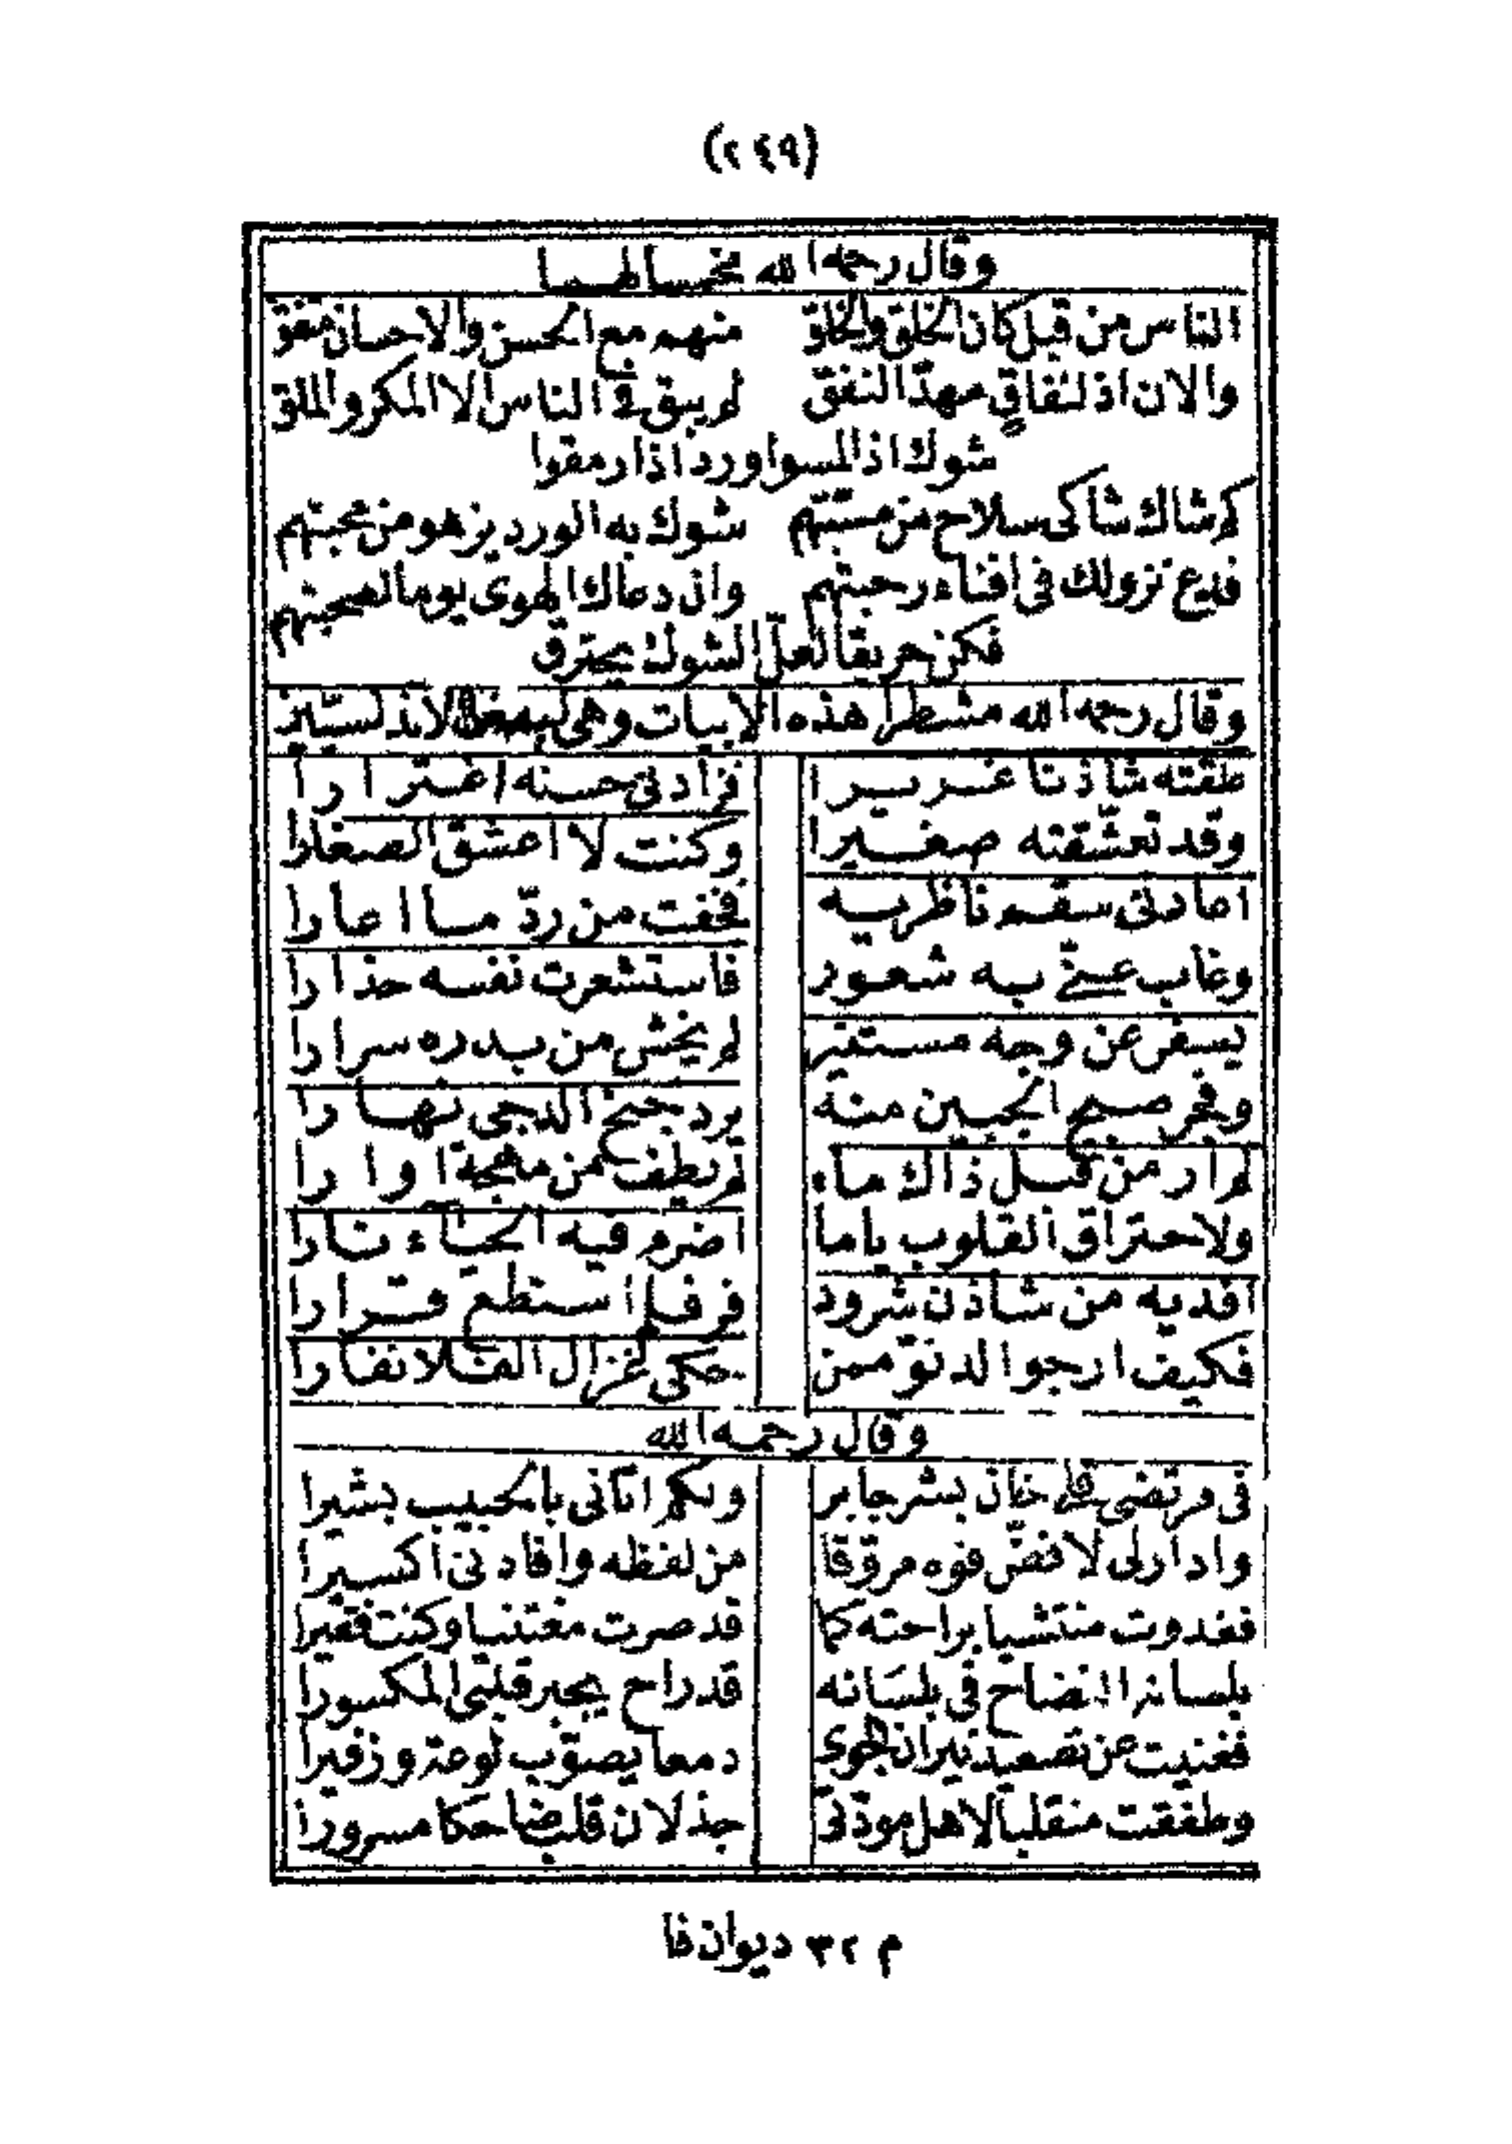 (٢٤٩)
وقال رحمه الله مخمسا لهما
الناس من قبل كان الخلق والخلق منهم مع الحسن والاحسان متفق
والان اذ لنفاق مهد النفق لم يبق في الناس الا المكر والملق
شوك اذا لمسوا ورد اذا رمقوا
كم شاك شاكى سلاح من مسنتهم شوك به الورد يزهو من محبتهم
فدع نزولك في افناء رحبتهم وان دعاك الهوى يوما لصحبتهم
فكن حريقا لعل الشوك يحترق
وقال رحمه الله مشطرا هذه الابيات وهي
علقته شاذنا غريرا فزادني حسنه اغترارا
وقد تعشّقته صغيرا وكنت لا اعشق الصغارا
اعادني سقم ناظريه فخفت من ردّ ما اعارا
وغاب عنّي به شعور فاستشعرت نفسه حذارا
يسفر عن وجه مستنير لم يخش من بدره سرارا
وفجر صبح الجبين منه يرد جنح الدجى نهارا
لم ار من قبل ذاك ماء لم يطف من مهجة اوارا
ولا حتراق القلوب ياما اضرم فيه الحياء نارا
افديه من شاذن شرود فر فلم استطع قرارا
فكيف ارجوا لدنوّ ممن حكى غزال الفلا نفارا
وقال رحمه الله
في مرتضى قلي خان بشر جابر ولكم اتاني بالحبيب بشيرا
وادار لي لا فضّ فوه مروّقا من لفظه وافادني اكسيرا
فغدوت منتشيا براحته كما قد صرت مغتنيا وكنت فقيرا
بلسانه النضاح في بلسانه قد راح يجبر قلبي المكسورا
فغنيت عن تصعيد نيران الجوى دمعا يصوّب لوعة وزفيرا
وطفقت منقلبا لاهل مودّتي جذلان قلب ضاحكا مسرورا
م ٣٢ ديوان فا